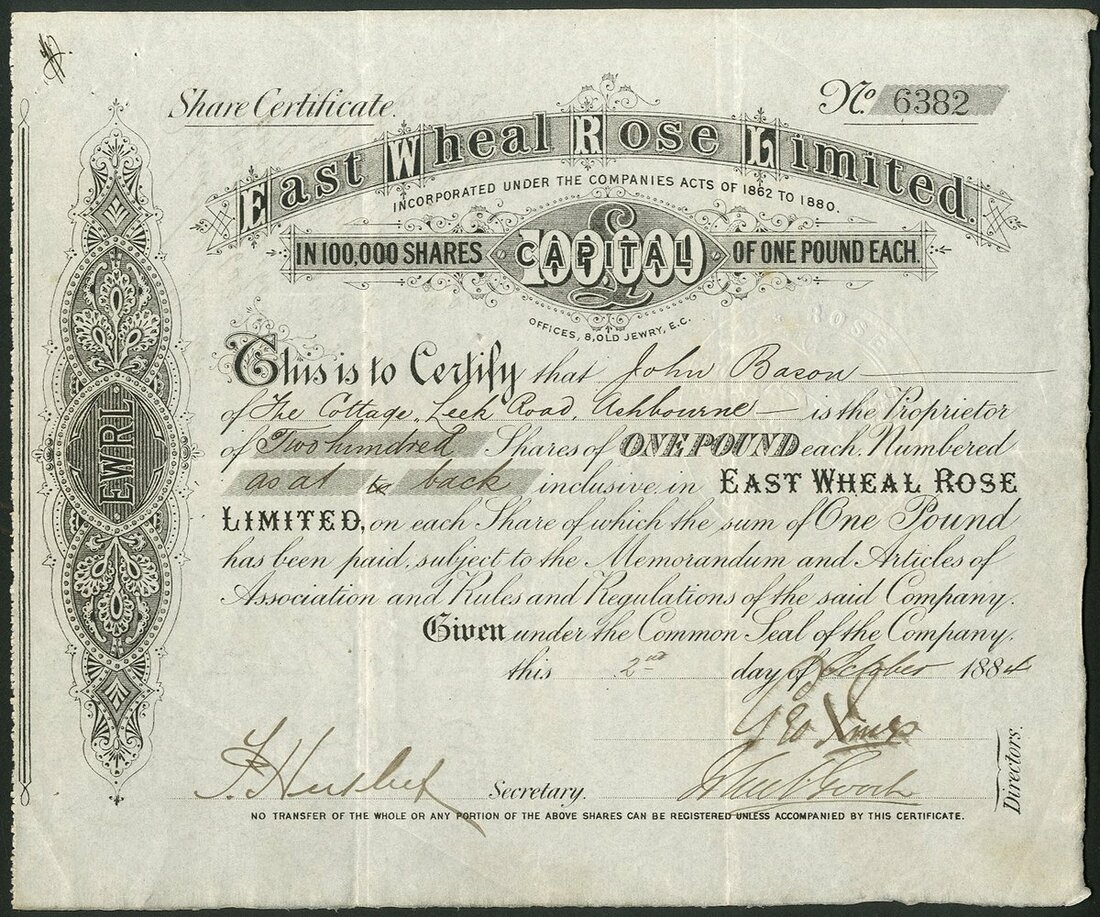 Share Certificate.
No. 6382
East Wheal Rose Limited.
INCORPORATED UNDER THE COMPANIES ACTS OF 1862 TO 1880.
IN 100,000 SHARES CAPITAL £100,000 OF ONE POUND EACH.
OFFICES, 8, OLD JEWRY, E.C.
ROSE
This is to Certify that John Bason
of The Cottage, Leek Road, Ashbourne is the Proprietor
of Two hundred Shares of ONE POUND each, Numbered
as at to back inclusive, in EAST WHEAL ROSE
LIMITED, on each Share of which the sum of One Pound
has been paid, subject to the Memorandum and Articles of
Association and Rules and Regulations of the said Company.
Given under the Common Seal of the Company,
this 2nd day of October 1884
Secretary.
Directors.
NO TRANSFER OF THE WHOLE OR ANY PORTION OF THE ABOVE SHARES CAN BE REGISTERED UNLESS ACCOMPANIED BY THIS CERTIFICATE.
EWRL